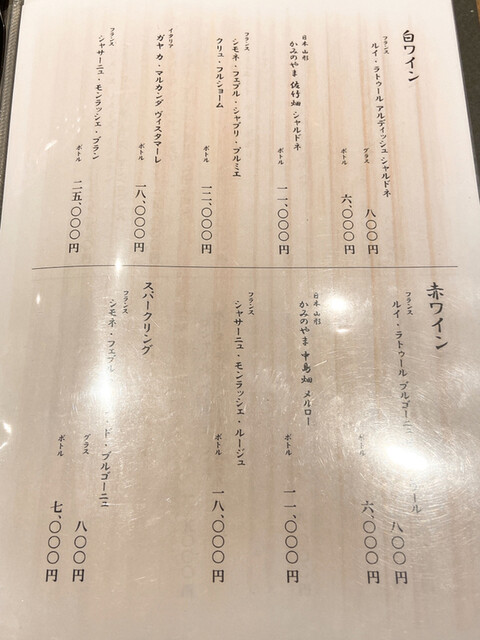 白ワイン
フランス
ルイ・ラトゥール アルディッシュ シャルドネ
グラス 八〇〇円
ボトル 六、〇〇〇円
日本 山形
かみのやま 佐竹畑 シャルドネ
ボトル 一一、〇〇〇円
フランス
シモネ・フェブル・シャブリ・プルミエ
クリュ・フルショーム
ボトル 一二、〇〇〇円
イタリア
ガヤ カ・マルカンダ ヴィスタマーレ
ボトル 一八、〇〇〇円
フランス
シャサーニュ・モンラッシェ・ブラン
ボトル 二五、〇〇〇円
赤ワイン
フランス
ルイ・ラトゥール ブルゴーニュ
ール
八〇〇円
ボトル 六、〇〇〇円
日本 山形
かみのやま 中島畑 メルロー
ボトル 一一、〇〇〇円
フランス
シャサーニュ・モンラッシェ・ルージュ
ボトル 一八、〇〇〇円
スパークリング
フランス
シモネ・フェブル
ド・ブルゴーニュ
グラス 八〇〇円
ボトル 七、〇〇〇円